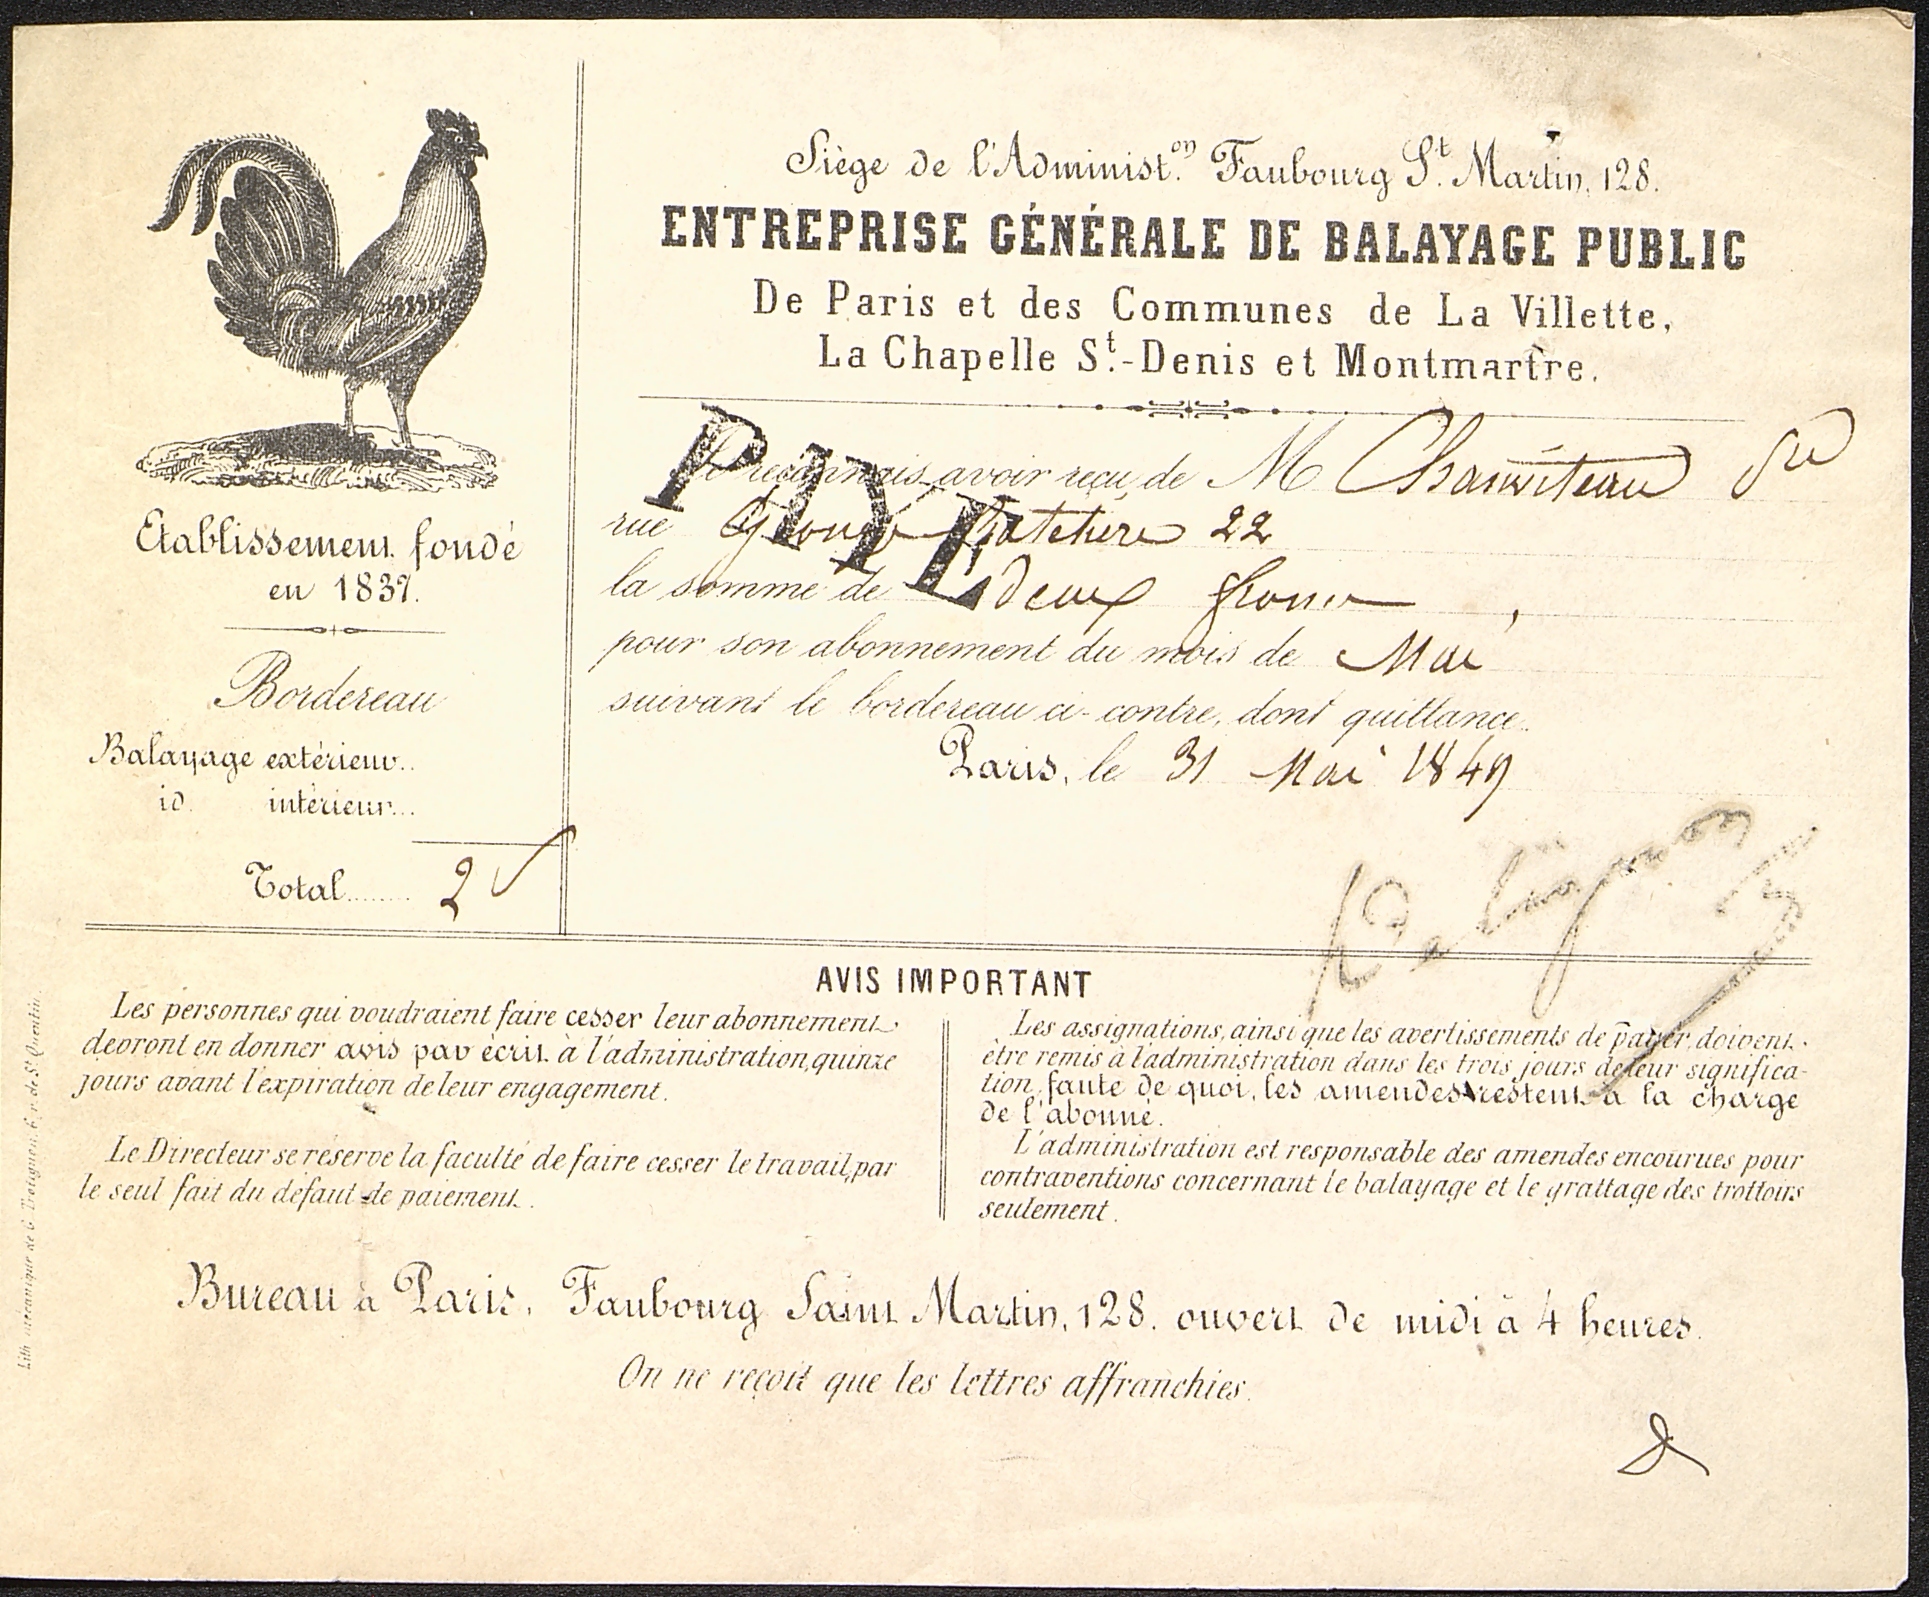 Siège de l'Administ.on Faubourg St. Martin, 128.
ENTREPRISE GÉNÉRALE DE BALAYAGE PUBLIC
De Paris et des Communes de La Villette,
La Chapelle St.-Denis et Montmartre.
Etablissement fondé
en 1837.
Bordereau
Balayage extérieur..
id. intérieur...
Total........ 2
PAYE
Je reconnais avoir reçu de M
rue Grange Batelière 22
la somme de deux francs,
pour son abonnement du mois de Mai
suivant le bordereau ci-contre, dont quittance.
Paris, le 31 Mai 1849
AVIS IMPORTANT
Les personnes qui voudraient faire cesser leur abonnement
devront en donner avis par écrit à l'administration, quinze
jours avant l'expiration de leur engagement.
Le Directeur se réserve la faculté de faire cesser le travail, par
le seul fait du défaut de paiement.
Les assignations, ainsi que les avertissements de payer, doivent
être remis à l'administration dans les trois jours de leur significa-
tion, faute de quoi, les amendes restent à la charge
de l'abonné.
L'administration est responsable des amendes encourues pour
contraventions concernant le balayage et le grattage des trottoirs
seulement.
Bureau à Paris, Faubourg Saint Martin, 128. ouvert de midi à 4 heures.
On ne reçoit que les lettres affranchies.
Lith. mécanique de C. r. de St. Quentin.